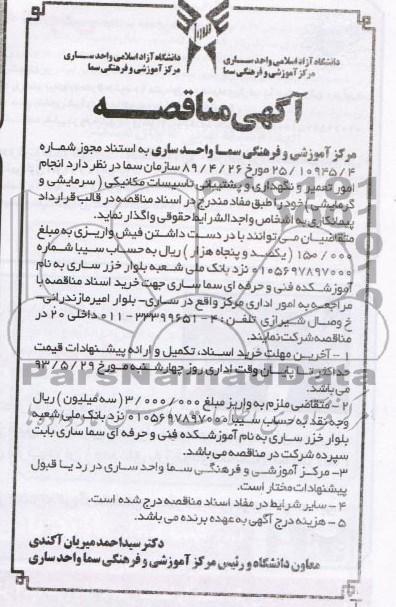 دانشگاه آزاد اسلامی واحد ساری
مرکز آموزشی و فرهنگی سما
دانشگاه آزاد اسلامی واحد ساری
مرکز آموزشی و فرهنگی سما
آگهی مناقصه
مرکز آموزشی و فرهنگی سما واحد ساری به استناد مجوز شماره
۲۵/۱۰۹۴۵/۴ مورخ ۸۹/۴/۲۶ سازمان سما در نظر دارد انجام
امور تعمیر و نگهداری و پشتیبانی تاسیسات مکانیکی ( سرمایشی و
گرمایشی ) خود را طبق مفاد مندرج در اسناد مناقصه در قالب قرارداد
پیمانکاری به اشخاص واجدالشرایط حقوقی واگذار نماید.
متقاضیان می توانند با در دست داشتن فیش واریزی به مبلغ
۱۵۰/۰۰۰ ( یکصد و پنجاه هزار ) ریال به حساب سیبا شماره
۰۱۰۵۶۹۷۸۹۷۰۰۰ نزد بانک ملی شعبه بلوار خزر ساری به نام
آموزشکده فنی و حرفه ای سما ساری جهت خرید اسناد مناقصه با
مراجعه به امور اداری مرکز واقع در ساری- بلوار امیرمازندرانی-
خ وصال شیرازی تلفن: ۴-۳۳۳۹۹۶۵۱-۰۱۱ داخلی ۲۰ در
مناقصه شرکت نمایند.
۱ - آخرین مهلت خرید اسناد، تکمیل و ارائه پیشنهادات قیمت
حداکثر تا پایان وقت اداری روز چهارشنبه مورخ ۹۳/۵/۲۹
می باشد.
۲- متقاضی ملزم به واریز مبلغ ۳/۰۰۰/۰۰۰ (سه میلیون) ریال
وجه نقد به حساب سیبا ۰۱۰۵۶۹۷۸۹۷۰۰۰ نزد بانک ملی شعبه
بلوار خزر ساری به نام آموزشکده فنی و حرفه ای سما ساری بابت
سپرده شرکت در مناقصه می باشد.
۳- مرکز آموزشی و فرهنگی سما واحد ساری در رد یا قبول
پیشنهادات مختار است.
۴ - سایر شرایط در مفاد اسناد مناقصه درج شده است.
۵ - هزینه درج آگهی به عهده برنده می باشد.
دکتر سید احمد میریان آکندی
معاون دانشگاه و رئیس مرکز آموزشی و فرهنگی سما واحد ساری
ParsNamadData